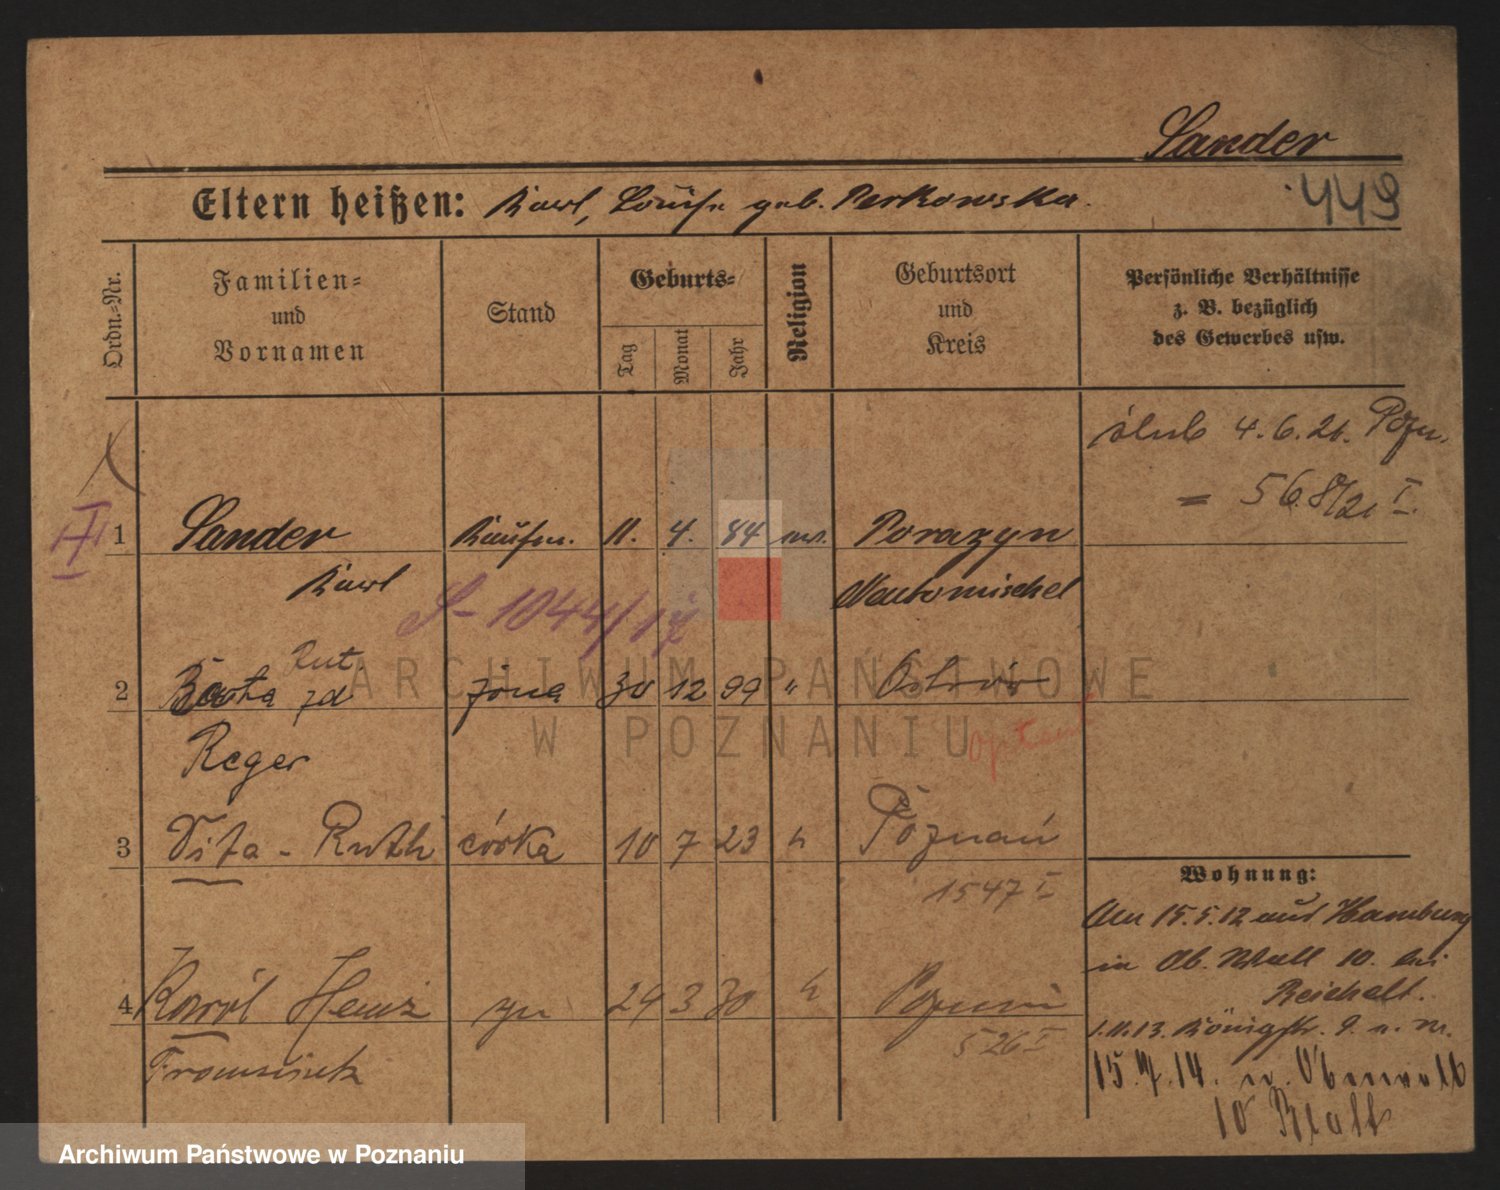 Sander
Eltern heißen: Karl, Louise geb. Perkowska.
449
Ordn.=Nr.
Familien=
und
Vornamen
Stand
Geburts=
Tag
Monat
Jahr
Religion
Geburtsort
und
Kreis
Persönliche Verhältnisse
z. B. bezüglich
des Gewerbes usw.
ślub 4.6.21. Pozn.
= 568/21 I.
1 Sander Kaufm. 11. 4. 84 Porazyn
Karl Neutomischel
S-1044/17
Rut
2 Beata zd żona 30 12 99 " Ostrów
Reger
3 Vita - Ruth córka 10 7 23 " Poznań
1547 I
4 Karol Heinz syn 24 3 30 " Poznań
526 I
Franciszek
Wohnung:
Am 15.5.12 aus Hamburg
in Ob. Wall 10. bei
Reichelt.
1.11.13. Königstr. 9. n. m.
15.7.14. n. Oberwall
10
ARCHIWUM PAŃSTWOWE
W POZNANIU
Archiwum Państwowe w Poznaniu